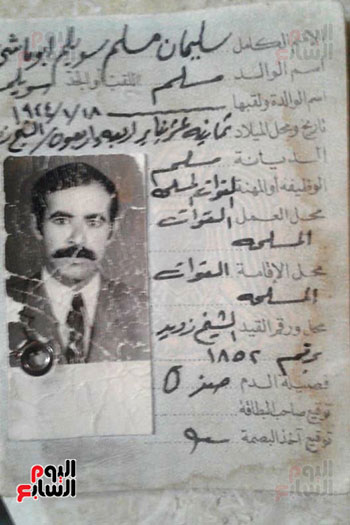 الاسم الكامل سليمان مسلم سويلم ابوهاشم
اسم الوالد مسلم اللقب والجد سويلم
اسم الوالدة ولقبها
تاريخ ومحل الميلاد ١٩٤٤/١/١٨
ثمانية عشر يناير اربعه واربعون / الشيخ زويد
الديانة مسلم
الوظيفة أو المهنة القوات المسلحه
محل العمل القوات
المسلحه
محل الإقامة القوات
المسلحه
محل ورقم القيد الشيخ زويد
برقم ١٨٥٢
فصيلة الدم صفر O
توقيع صاحب البطاقة
توقيع آخذ البصمة
اليوم السابع
اليوم السابع